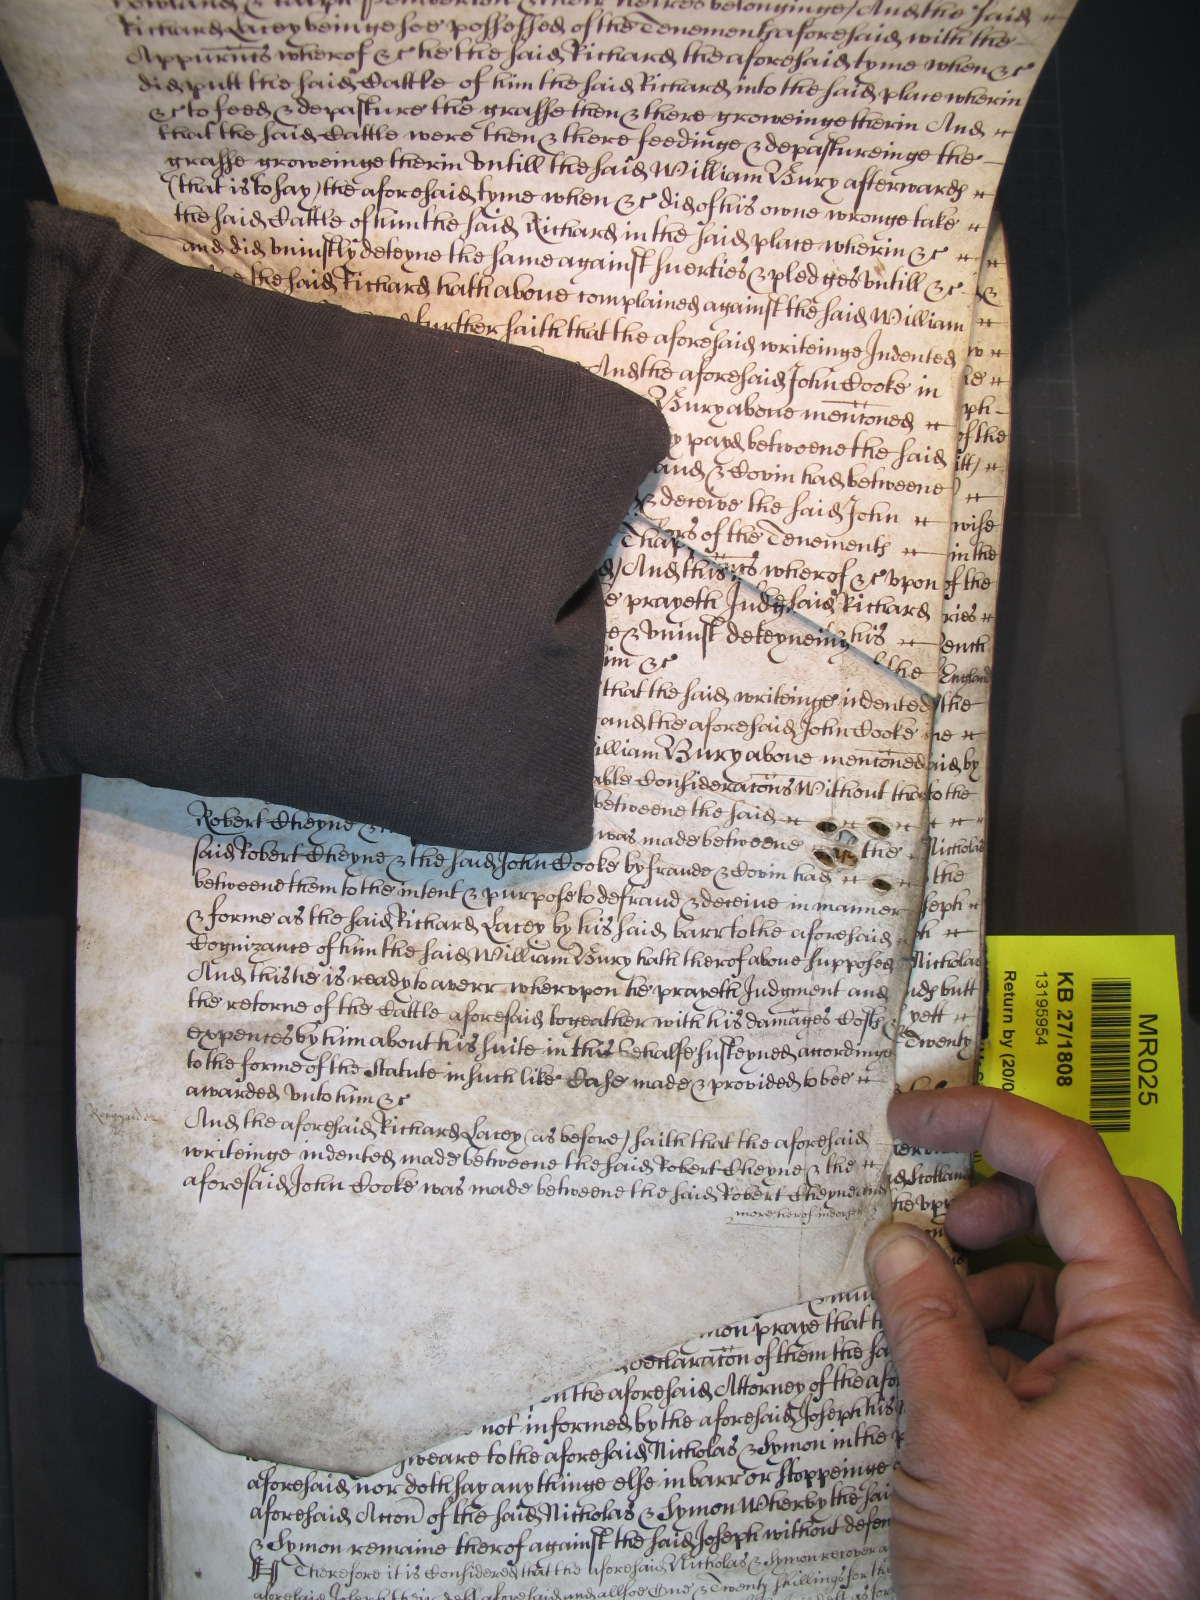 Rowland & Ralph Pemberton & their heires belonginge) And the said
Richard Lacey beinge soe possessed of the Tenements aforesaid with the
Appurtñts wherof &c he the said Richard the aforesaid tyme when &c
did putt the said Cattle of him the said Richard into the said place wherin
&c to feed & depasture the grasse then & there groweinge therin And
that the said Cattle were then & there feedinge & depastureinge the
grasse groweinge therin untill the said William Bury afterwards
(that is to say) the aforesaid tyme when &c did of his owne wronge take
the said Cattle of him the said Richard in the said place wherin &c
and did uniustly deteyne the same against suerties & pledges untill &c
the said Richard hath above complained against the said William
further saith that the aforesaid writeinge Indented
And the aforesaid John Cooke in
Bury above mencõned
payd betweene the said
and & Covin had betweene
& deceive the said John
of the Tenements
And this wherof &c upon
prayeth Judg said Richard
& uniust deteyneing his
him &c the
that the said writeinge indented
and the aforesaid John Cooke
William Bury above mencõned
able Consideracõns Without
betweene the said
Robert Cheyne &
was made betweene the
said Robert Cheyne & the said John Cooke by fraude & Covin had
betweene them to the intent & purpose to defraud & deceive in manner
& forme as the said Richard Lacey by his said barr to the aforesaid
Cognizance of him the said William Bury hath therof above supposed
And this he is ready to averr wherupon he prayeth Judgment and
the retorne of the Cattle aforesaid togeather with his damages Costs &
expences by him about his suite in this behalfe susteyned accordinge
to the forme of the Statute in such like Case made & provided to bee
awarded unto him &c
And the aforesaid Richard Lacey (as before) saith that the aforesaid
writeinge indented made betweene the said Robert Cheyne & the
aforesaid John Cooke was made betweene the said Robert Cheyne and
more herof indorsed
of the
wise
in the
of the
ries
England
the
said by
to the
Nicholas
the
Joseph
Nicholas
nds butt
yett
Twenty
Scotland
mon praye that
declaracõn of them the
on the aforesaid Attorney of the
not informed by the aforesaid Joseph his
sweare to the aforesaid Nicholas & Symon in the
aforesaid nor doth say any thinge else in barr or stoppeinge
aforesaid Accõn of the said Nicholas & Symon Wherby the said
& Symon remaine therof against the said Joseph without defen
Therefore it is Considered that the aforesaid Nicholas & Symon recover
aforesaid Joseph their debt aforesaid and allsoe One & Twenty shillings for
MR025
KB 27/1808
13195954
Return by (20/0